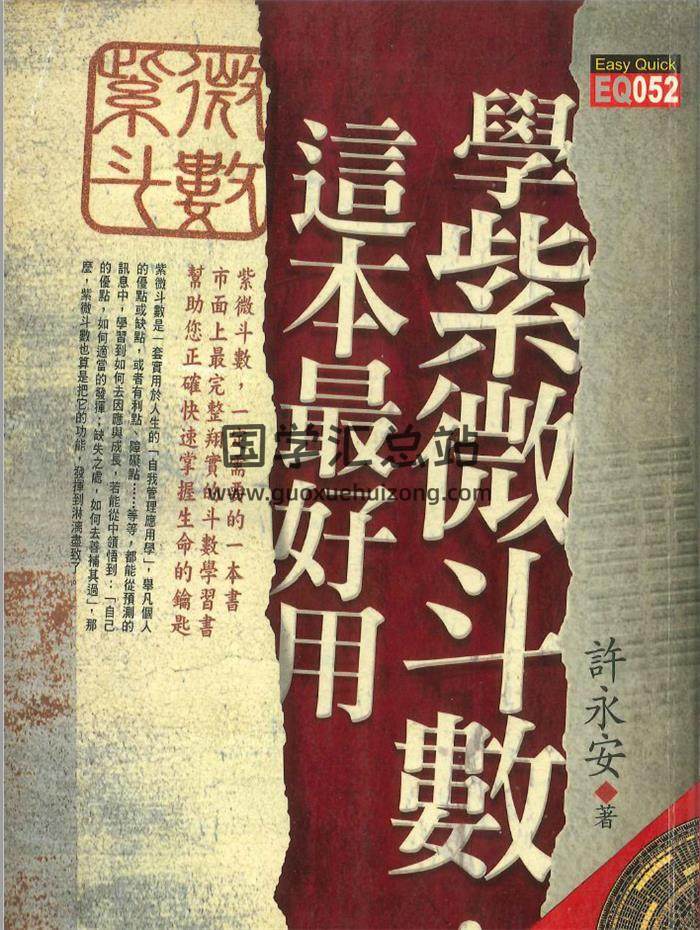 Easy Quick
EQ052
學紫微斗數，
這本最好用
許永安◆著
紫微
斗數
紫微斗數，一定需要的一本書
市面上最完整翔實的斗數學習書
幫助您正確快速掌握生命的鑰匙
紫微斗數是一套實用於人生的「自我管理應用學」，舉凡個人
的優點或缺點，或者有利點、障礙點……等等，都能從預測的
訊息中，學習到如何去因應與成長，若能從中領悟到：「自己
的優點，如何適當的發揮；缺失之處，如何去善補其過」，那
麼，紫微斗數也算是把它的功能，發揮到淋漓盡致了。
国学汇总站
www.guoxuehuizong.com